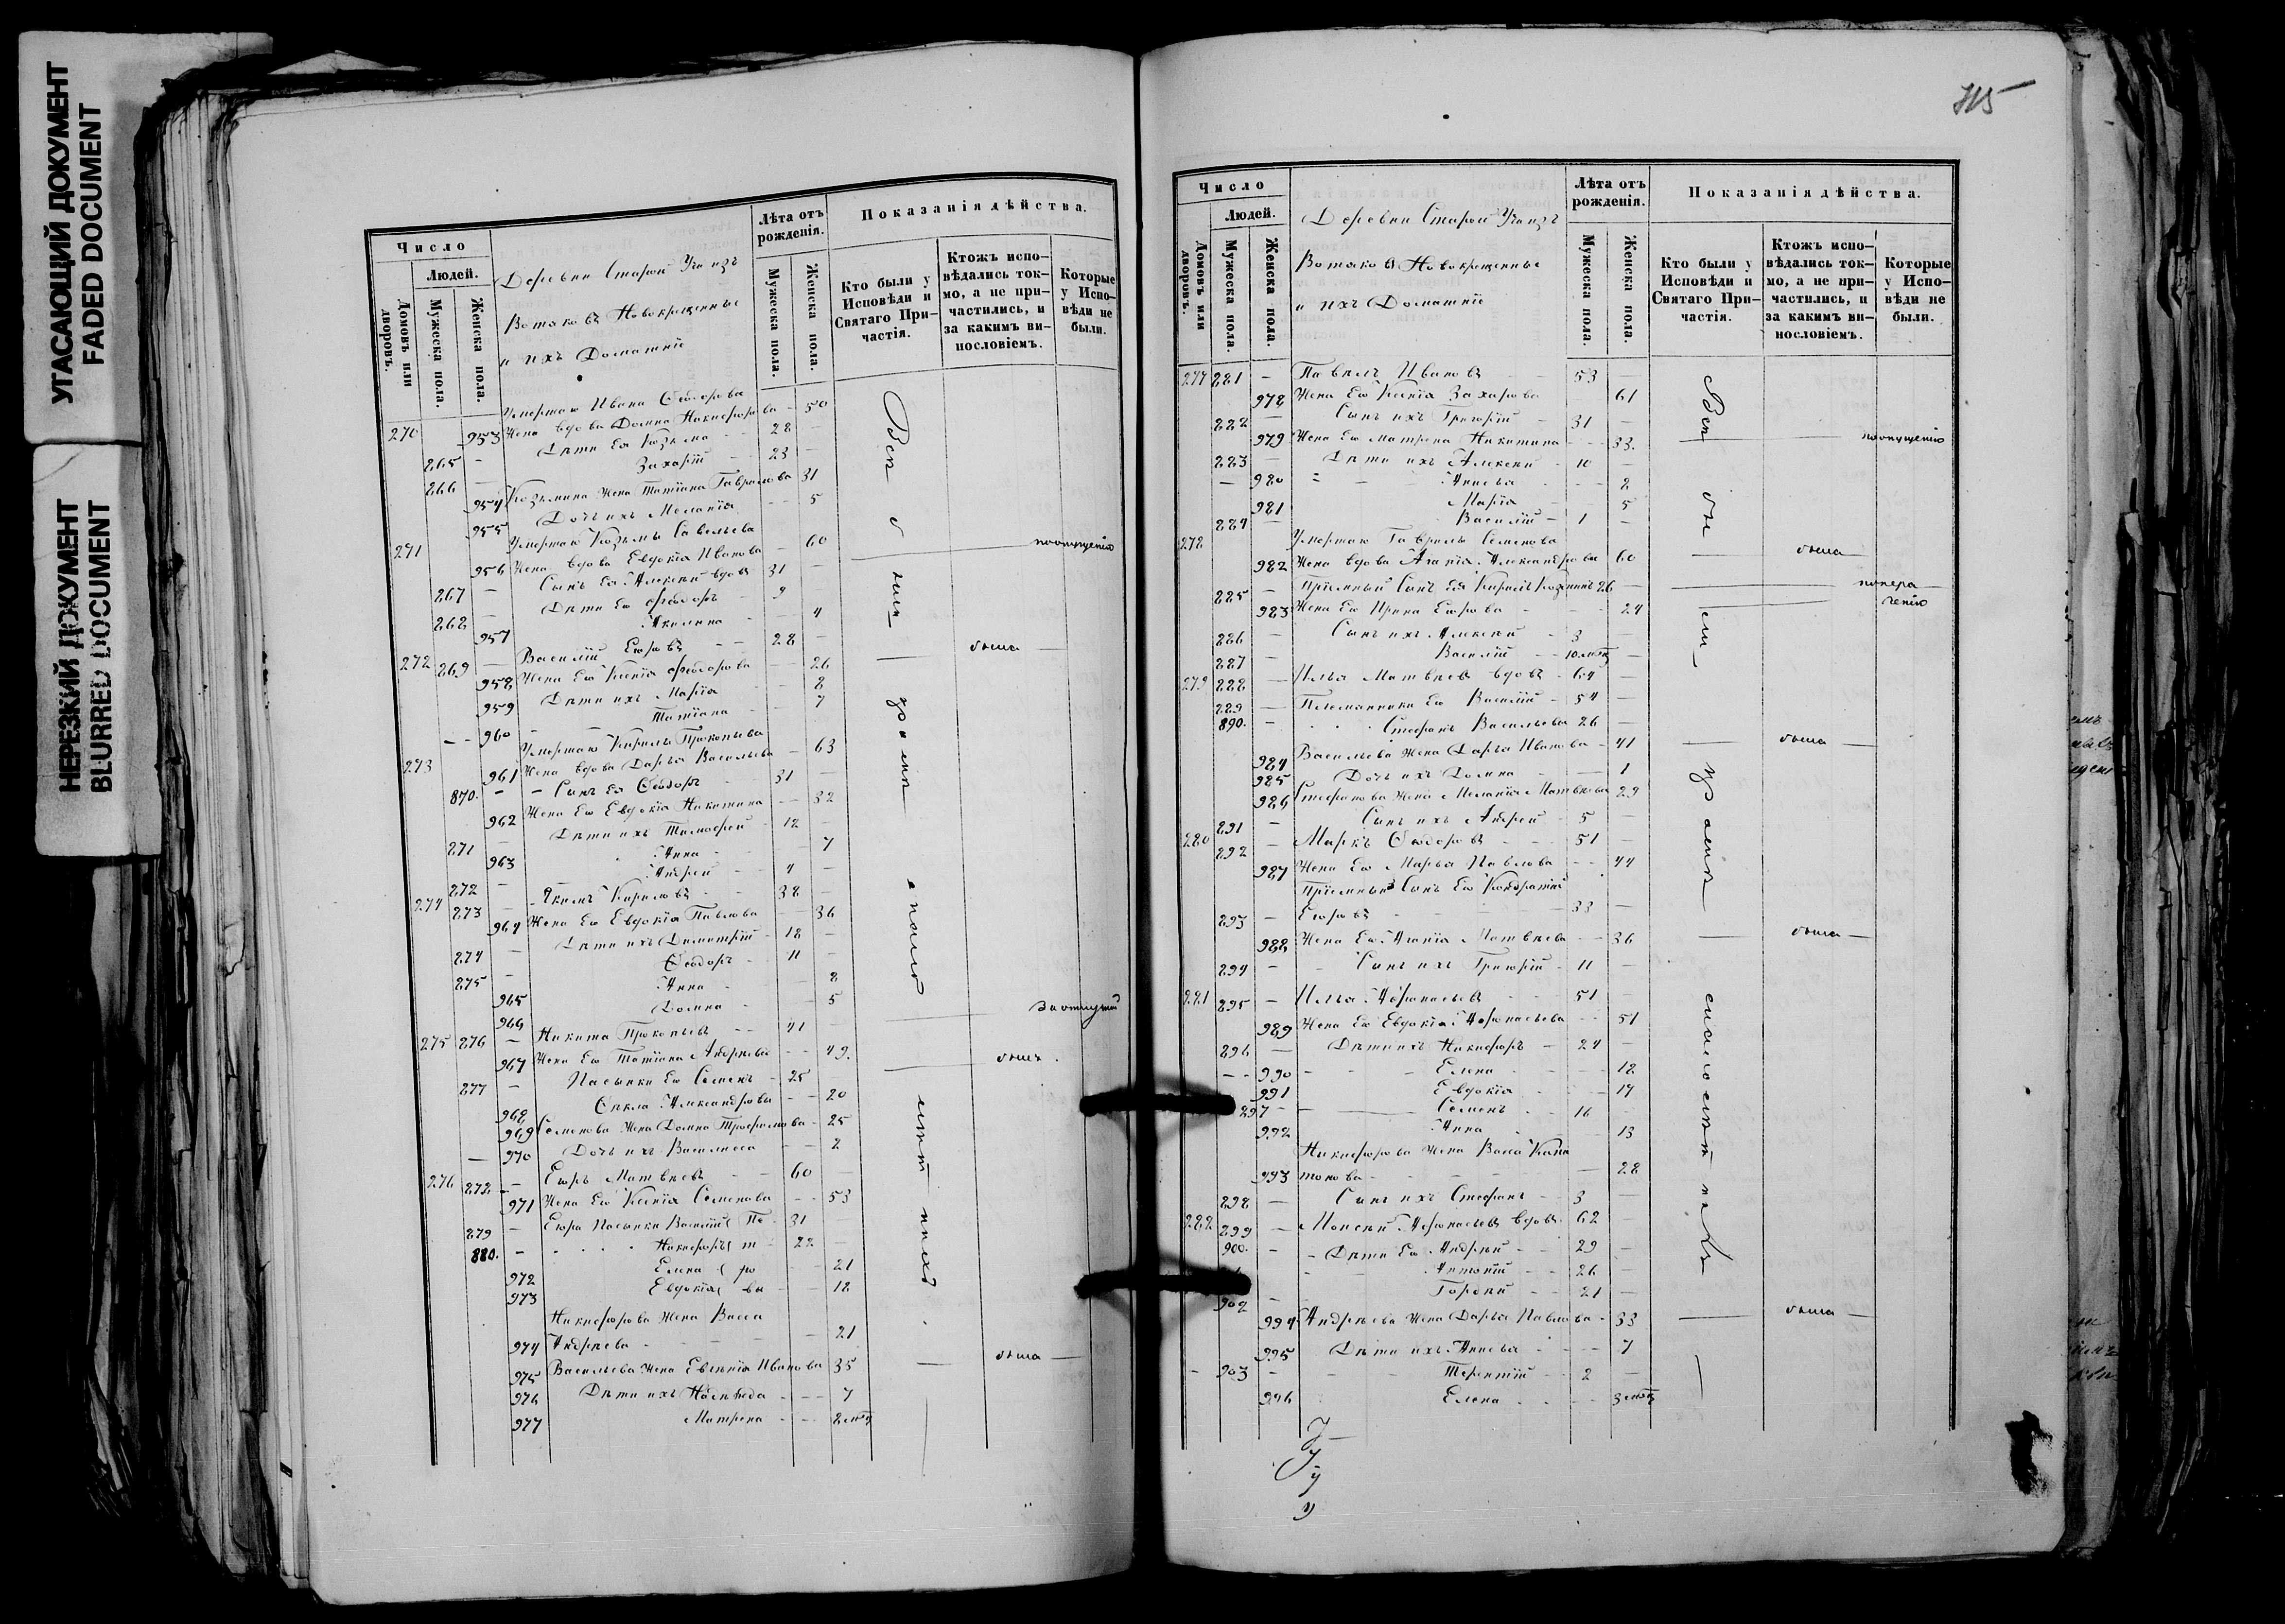 УГАСАЮЩИЙ ДОКУМЕНТ
FADED DOCUMENT
НЕРЕЗКИЙ ДОКУМЕНТ
BLURRED DOCUMENT
Число
Людей.
Домовъ или дворовъ.
Мужеска пола.
Женска пола.
Деревни Старой
Вотяковъ Новокрещенные
и ихъ Домашніе
Лѣта отъ рожденія.
Мужеска пола.
Женска пола.
Показанія дѣйства.
Кто были у Исповѣди и Святаго Причастія.
Ктожъ исповѣдались токмо, а не причастились, и за какимъ винословіемъ.
Которые у Исповѣди не были.
Умершаго Ивана Ѳеодорова
270 953 Жена вдова Домна Никифорова - 50
265 - Дѣти Ея Козьма 28 -
266 - Захарій 23 -
954 Козьмина Жена Татіана Гаврилова 31
955 Дочь ихъ Меланія - - 5
271 Умершаго Козьмы Савельева
956 Жена вдова Евдокія Иванова - 60 по опущенію
267 - Сынъ Ея Алексѣй вдовъ 31 -
268 - Дѣти Его Феодоръ 9
957 Акилина - 4
272 269 - Василій Егоровъ 28 -
958 Жена Его Ксенія Феодорова - 26 была
959 Дѣти ихъ Марія - 8
960 Татіана - 7
273 Умершаго Кирила Прокопьева
961 Жена вдова Дарья Васильева - 63
870. - Сынъ Ея Ѳеодоръ 31 -
962 Жена Его Евдокія Никитина - 32
271 - Дѣти ихъ Тимофей 12 -
963 Анна - 7
272 - Андрей 4 -
274 273 - Якимъ Кириловъ 38 -
964 Жена Его Евдокія Павлова - 36
274 - Дѣти ихъ Димитрій 18 -
275 - Ѳеодоръ 11 -
965 Анна - 8
966 Домна - 5
275 276 - Никита Прокопьевъ 41
967 Жена Его Татіана Андреева - 49.
277 - Пасынки Его Семенъ 25
968 Ѳекла Александрова - 20
969 Семенова Жена Домна Трофимова - 25
970 Дочь ихъ Василиса - 2
276 278 - Егоръ Матвѣевъ 60
971 Жена Его Ксенія Семенова - 53
279 - Егора Пасынки Василій Пе 31
880. - Никифоръ т 22
972 Елена ро - 21
973 Евдокія вы - 18
Никифорова Жена Васса
974 Андреева - 21
975 Васильева Жена Евгенія Иванова 35 была
976 Дѣти ихъ - 7
977 Матрена - 2 мѣсц
Всѣ были у
Число
Людей.
Домовъ или дворовъ.
Мужеска пола.
Женска пола.
Деревни Старой
Вотяковъ Новокрещенные
и ихъ Домашніе
Лѣта отъ рожденія.
Мужеска пола.
Женска пола.
Показанія дѣйства.
Кто были у Исповѣди и Святаго Причастія.
Ктожъ исповѣдались токмо, а не причастились, и за какимъ винословіемъ.
Которые у Исповѣди не были.
277 281 - Павелъ Ивановъ 53 -
978 Жена Его Ксенія Захарова 61
282 - Сынъ ихъ Григорій 31 -
979 Жена Его Матрена Никитина - 33. по опущенію
283 - Дѣти ихъ Алексѣй 10 -
980 Анисья - 8
981 Марія - 5
284 - Василій 1 -
278 Умершаго Гаврилы Семенова
982 Жена вдова Агапія Александрова 60 была
285 - Пріемный Сынъ Ея Кирилъ Козминъ 26 - по нерачению
983 Жена Его Ирина Егорова - 24
286 - Сынъ ихъ Алексѣй 3 -
287 - Василій 10 мѣсц -
279 288 - Илья Матвѣевъ вдовъ 64 -
289 - Племянники Его Василій 54 -
890. - Стефанъ Васильевы 26 -
984 Васильева Жена Дарья Иванова - 41 была
985 Дочь ихъ Домна - 1
986 Стефанова Жена Меланія Матвѣева 29
291 - Сынъ ихъ Андрей 5 -
280 292 - Маркъ Ѳеодоровъ 51 -
987 Жена Его Марья Павлова - 44
Пріемный Сынъ Его Кондратій
293 - Егоровъ 33 -
988 Жена Его Агапія Матвѣева - 36 была
294 - Сынъ ихъ Григорій 11 -
281 295 - Илья Афонасьевъ 51 -
989 Жена Его Евдокія Афонасьева - 51
296 - Дѣти ихъ Никифоръ 24 -
990 Елена - 18
991 Евдокія - 17
297 - Семенъ 16 -
992 Анна - 13
Никифорова Жена Васса Капи
993 тонова - 28
298 - Сынъ ихъ Стефанъ 3 -
282 299 - Моисей Афонасьевъ вдовъ 62 -
900. - Дѣти Его Андрей 29 -
Антоній 26 -
902 - Гордѣй 21 -
994 Андреева Жена Дарья Павлова - 33 была
995 Дѣти ихъ Анисья - 7
903 - Терентій 2 -
996 Елена - 3 мѣсц
Всѣ